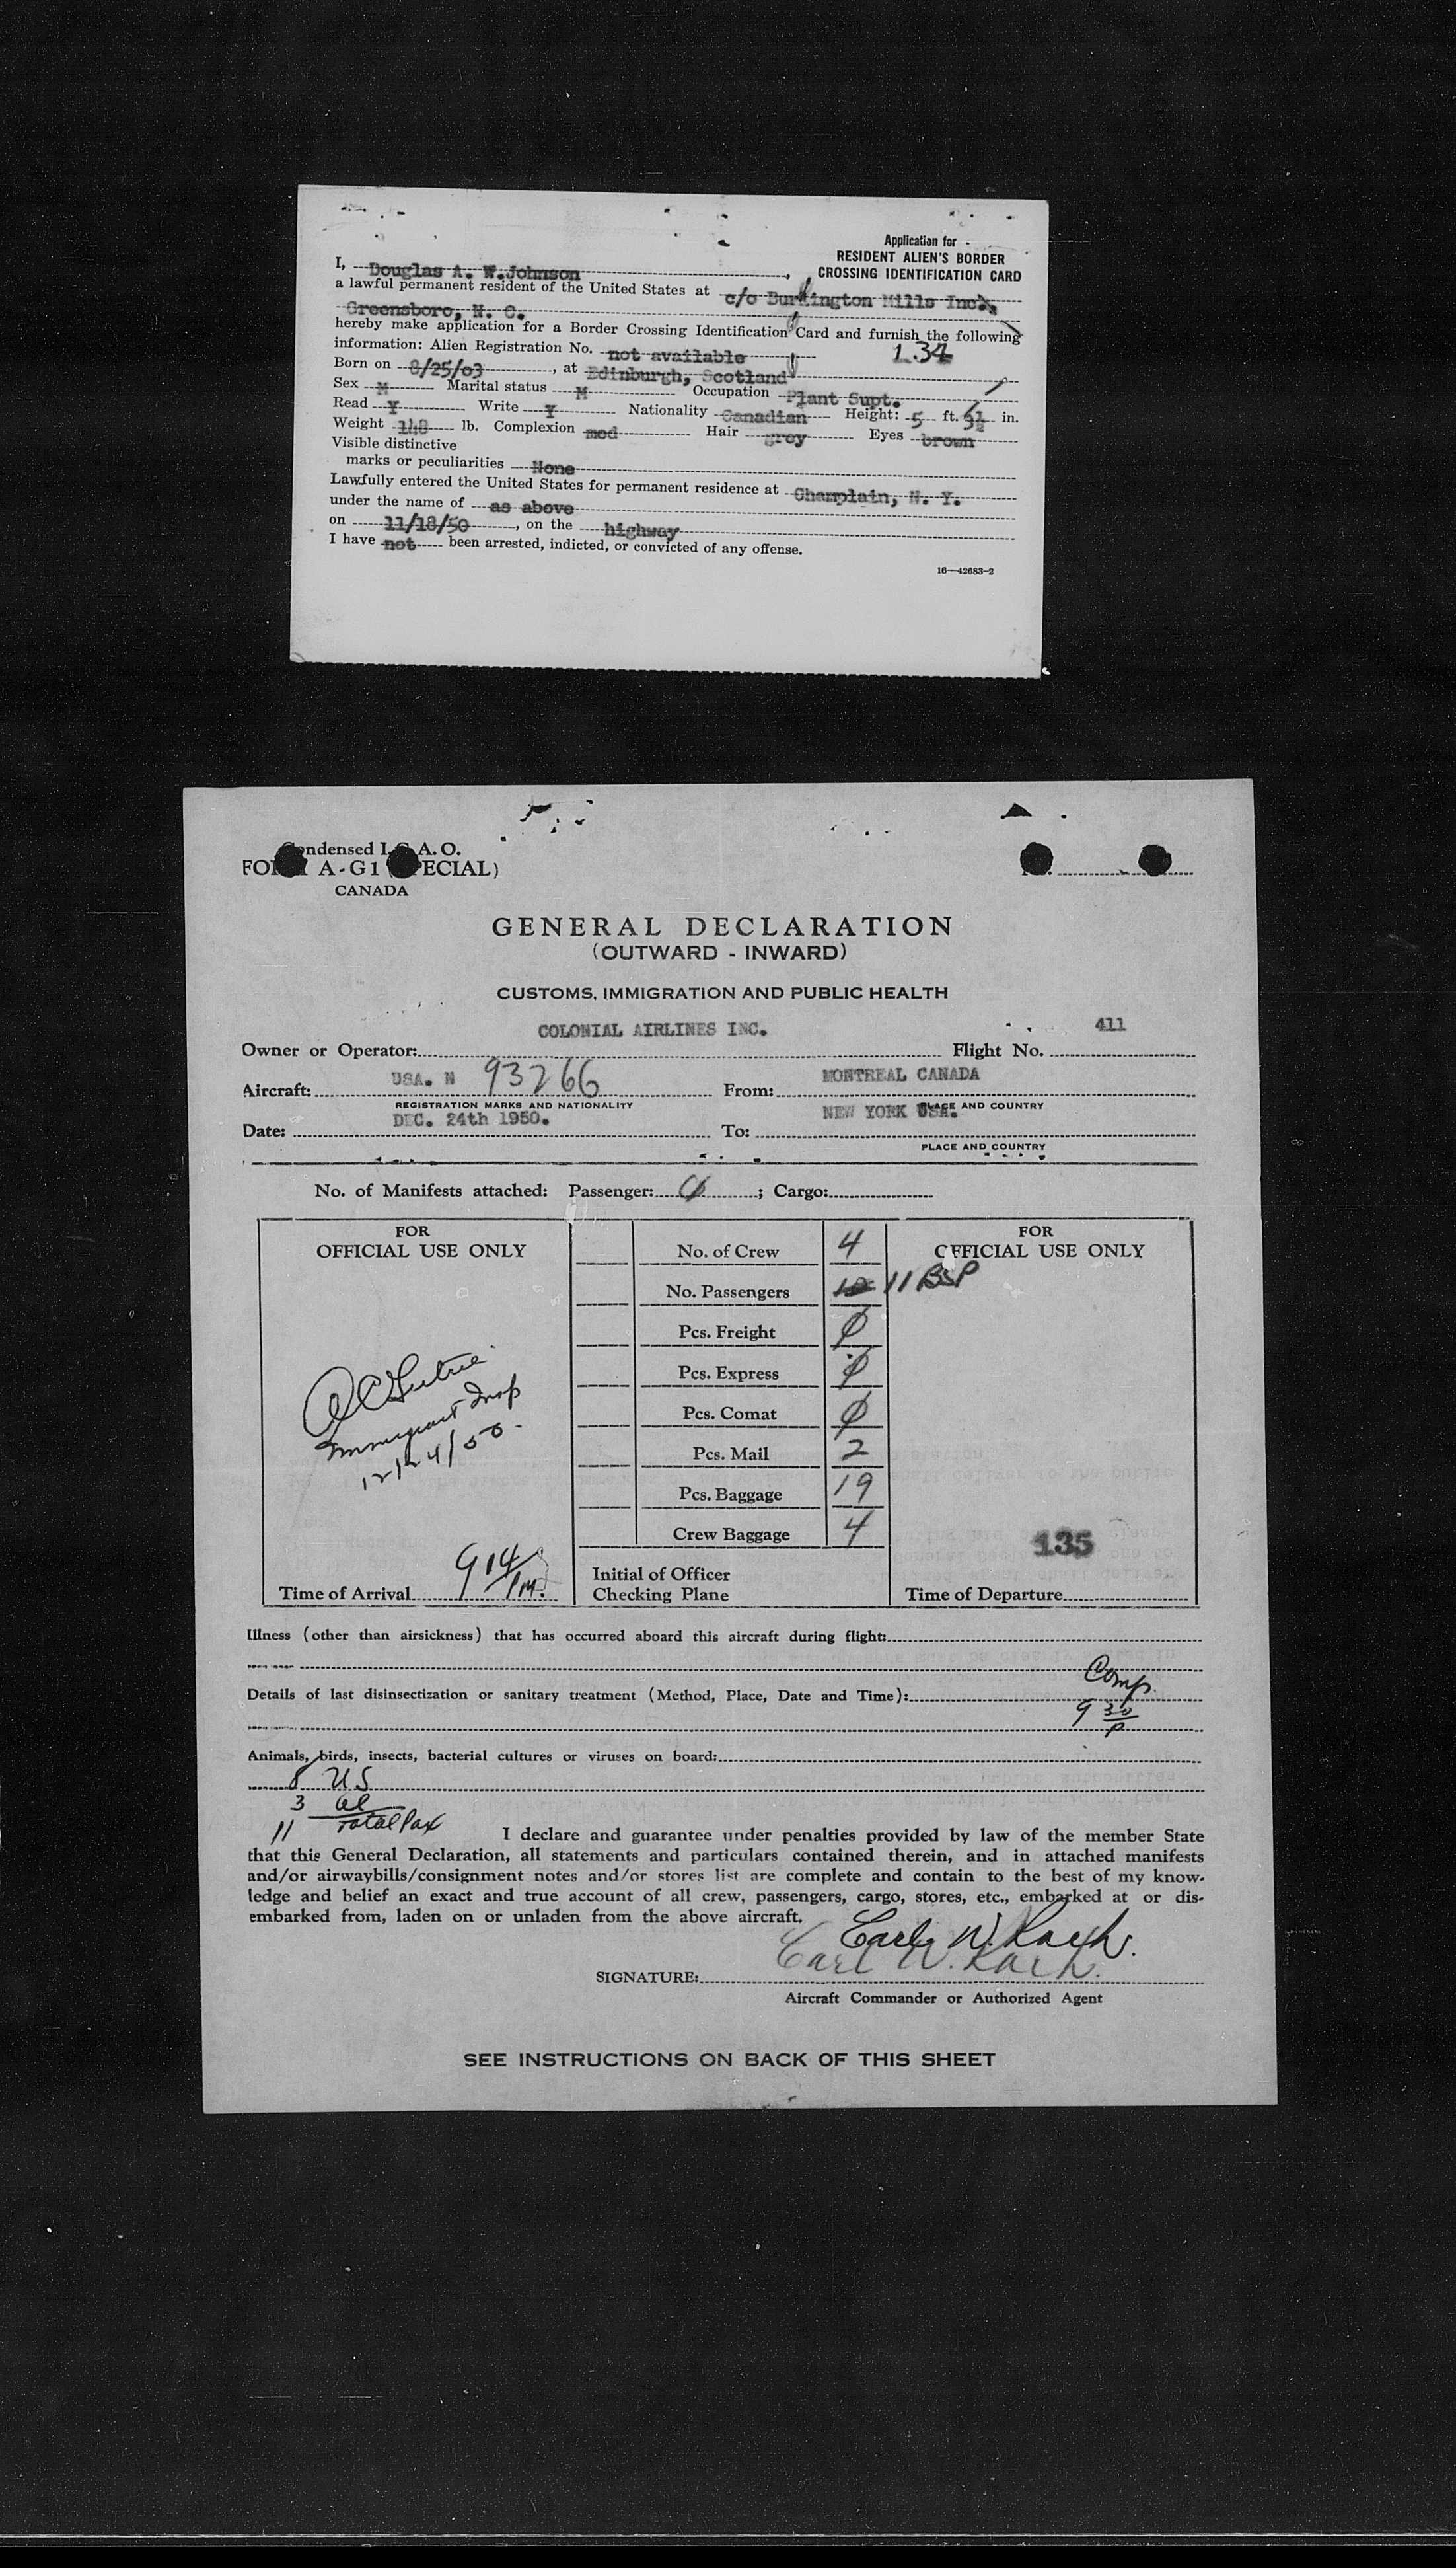 Application for
RESIDENT ALIEN'S BORDER
CROSSING IDENTIFICATION CARD
I, Douglas A. W. Johnson,
a lawful permanent resident of the United States at c/o Burlington Mills Inc.,
Greensboro, N. C.
hereby make application for a Border Crossing Identification Card and furnish the following
information: Alien Registration No. not available 134
Born on 8/25/03, at Edinburgh, Scotland
Sex M Marital status M Occupation Plant Supt.
Read Y Write Y Nationality Canadian Height: 5 ft. 9½ in.
Weight 148 lb. Complexion med Hair grey Eyes brown
Visible distinctive
marks or peculiarities None
Lawfully entered the United States for permanent residence at Champlain, N. Y.
under the name of as above
on 11/18/50, on the highway
I have not been arrested, indicted, or convicted of any offense.
16—42683-2
Condensed I.C.A.O.
FORM A-G1 (SPECIAL)
CANADA
GENERAL DECLARATION
(OUTWARD - INWARD)
CUSTOMS, IMMIGRATION AND PUBLIC HEALTH
Owner or Operator: COLONIAL AIRLINES INC. Flight No. 411
Aircraft: USA. N 93266 From: MONTREAL CANADA
REGISTRATION MARKS AND NATIONALITY PLACE AND COUNTRY
Date: DEC. 24th 1950. To: NEW YORK USA.
PLACE AND COUNTRY
No. of Manifests attached: Passenger: ; Cargo:
FOR
OFFICIAL USE ONLY
Immigrant Insp
12/24/50
Time of Arrival 9 14 PM.
No. of Crew 4
No. Passengers 12 11 BSP
Pcs. Freight ∅
Pcs. Express ∅
Pcs. Comat ∅
Pcs. Mail 2
Pcs. Baggage 19
Crew Baggage 4
Initial of Officer
Checking Plane
FOR
OFFICIAL USE ONLY
135
Time of Departure
Illness (other than airsickness) that has occurred aboard this aircraft during flight:
Comp.
Details of last disinsectization or sanitary treatment (Method, Place, Date and Time):
9 30 P
Animals, birds, insects, bacterial cultures or viruses on board:
8 US
3 al
11 Total Pax
I declare and guarantee under penalties provided by law of the member State
that this General Declaration, all statements and particulars contained therein, and in attached manifests
and/or airwaybills/consignment notes and/or stores list are complete and contain to the best of my know-
ledge and belief an exact and true account of all crew, passengers, cargo, stores, etc., embarked at or dis-
embarked from, laden on or unladen from the above aircraft.
Carl W. Rach.
SIGNATURE: Carl W. Rach.
Aircraft Commander or Authorized Agent
SEE INSTRUCTIONS ON BACK OF THIS SHEET